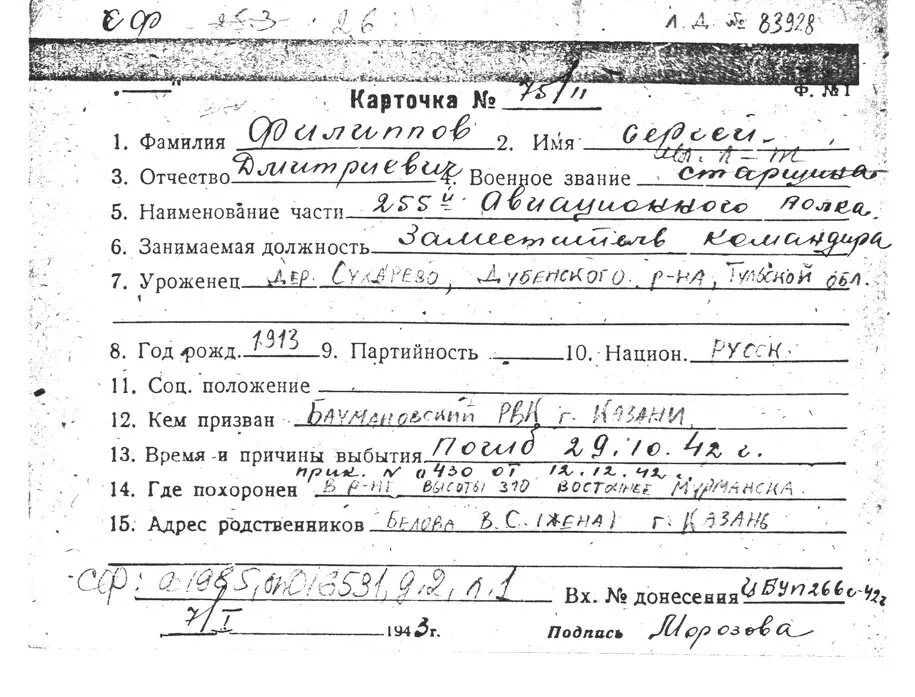 СФ 253 26 Л.Д. № 83928
Ф. №1
Карточка № 75/II
1. Фамилия Филиппов 2. Имя Сергей
мл. л-т
3. Отчество Дмитриевич 4. Военное звание старшина
5. Наименование части 255й Авиационного полка.
6. Занимаемая должность Заместитель командира
7. Уроженец дер. Сухарево, Дубенского р-на, Тульской обл.
8. Год рожд. 1913 9. Партийность 10. Национ. русск.
11. Соц. положение
12. Кем призван Баумановский РВК г. Казани
13. Время и причины выбытия Погиб 29.10.42 г.
прик. N 0430 от 12.12.42 г.
14. Где похоронен в р-не высоты 310 восточнее Мурманска.
15. Адрес родственников Белова В.С. (жена) г. Казань
СФ: д.2, л.1 Вх. № донесения
7/I 1943 г. Подпись Морозова